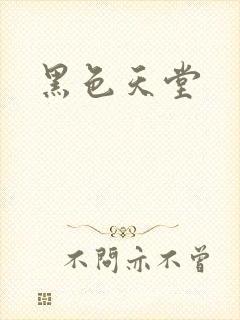 黑色天堂
不問亦不曾